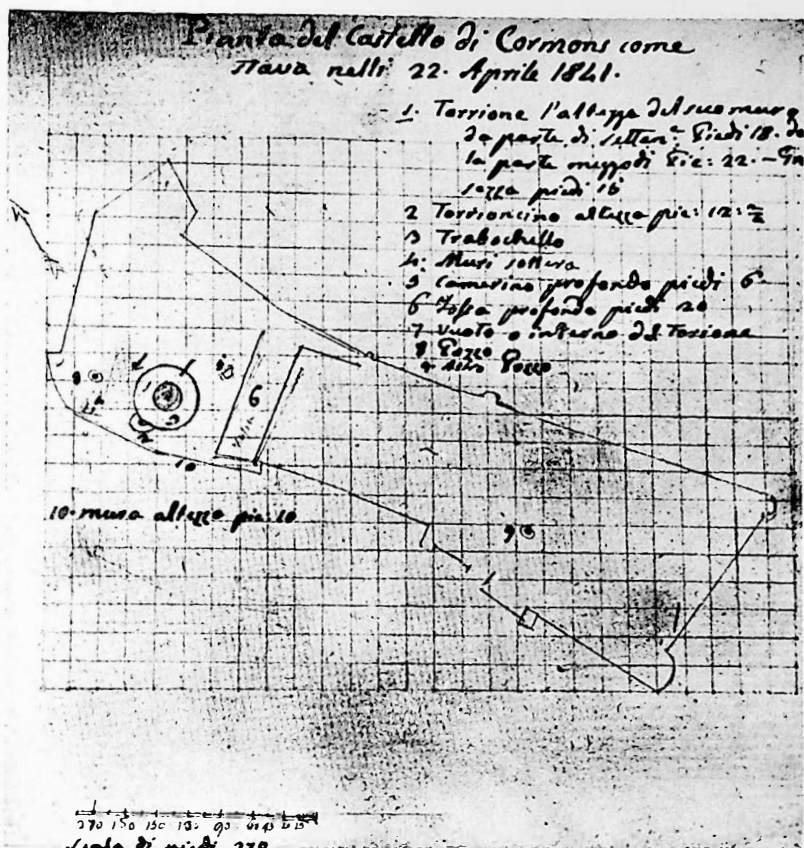 Pianta del Castello di Cormons come
stava nelli 22. Aprile 1841.
1. Torrione l'altezza del suo muro
da parte di setten. Piedi 18. da
la parte mezzodi Pie: 22. – Gro
sezza piedi 16
2 Torrioncino altezza pie: 12:
3 Trabochello
4: Muri sottera
5 Camerino profondo piedi 6.
6 Fossa profonda piedi 20
7 Vuoto o interno del Torione
8 Pozzo
9 Altro Pozzo
6
8
10
10. mura altezza pie. 10
9
Scala di piedi 270